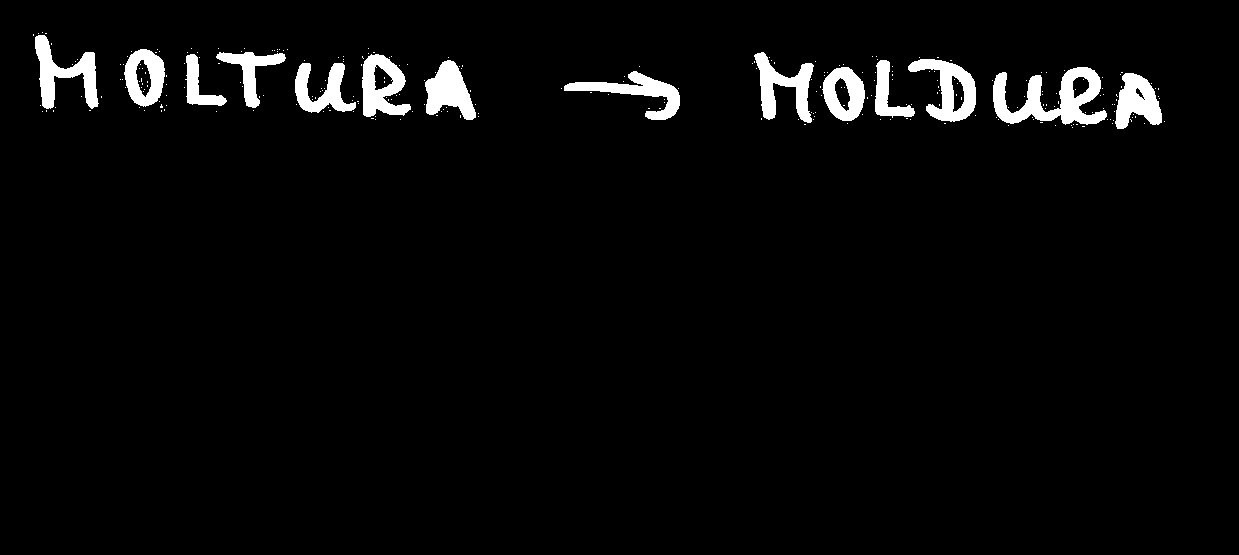 MOLTURA → MOLDURA